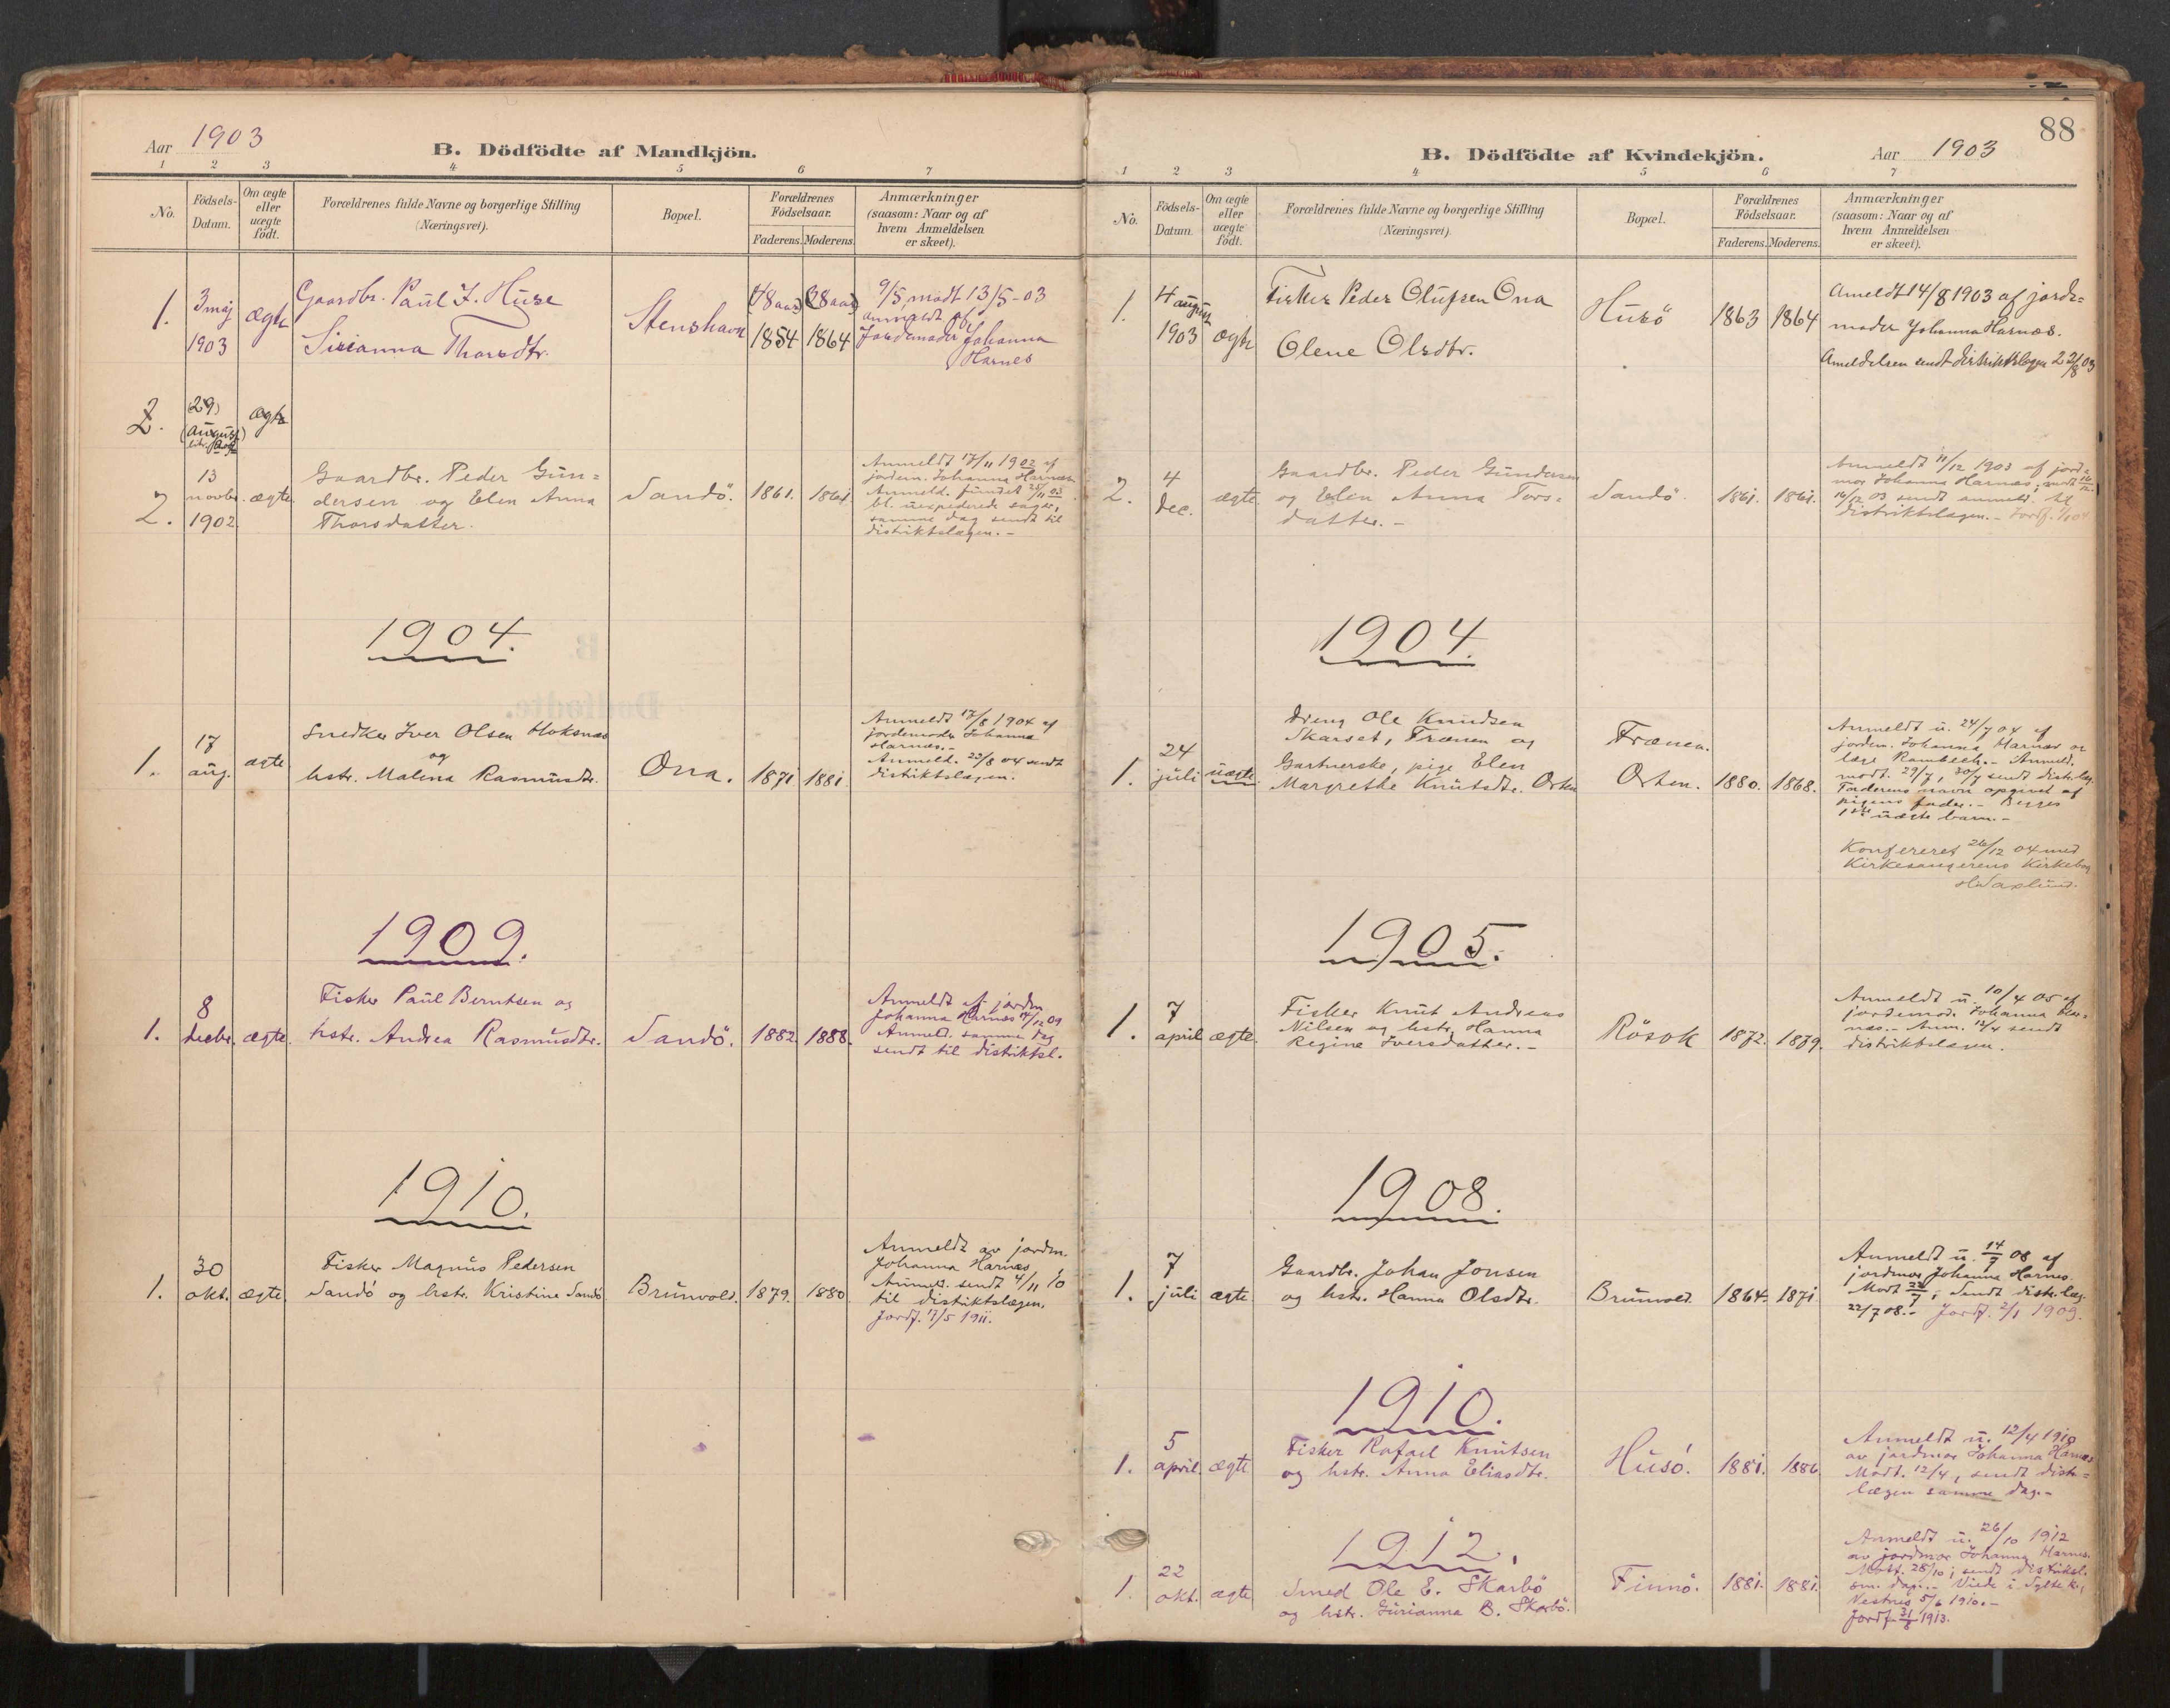 Aar 1903
B. Dödfödte af Mandkjön.
1 2 3 4 5 6 7
No.
Födsels-
Datum.
Om ægte
eller
uægte
født.
Forældrenes fulde Navne og borgerlige Stilling
(Næringsvei).
Bopæl.
Forældrenes
Födselsaar.
Faderens. Moderens.
Anmærkninger
(saasom: Naar og af
hvem Anmeldelsen
er skeet).
1.
3 maj
1903
ægte
Gaardbr. Paul J. Huse
Sirianna Thorsdtr.
Stenshavn
(48 aar) (38 aar)
1854 1864
9/5 modt 13/5-03
anmeldt af
Jordemoder Johanna
Harnes
2.
(29)
(august)
ægte
2.
13
novbr.
1902.
ægte
Gaardbr. Peder Gun=
dersen og Elen Anna
Thorsdatter.
Sandö.
1861. 1861.
Anmeldt 17/11 1902 af
jordem. Johanna Harnæs.
Anmeld. fundet 25/11 03
bl. uexpederede sager,
samme dag sendt til
distriktslægen.-
1904.
1.
17
aug.
ægte
Snedker Iver Olsen Hoksnæs
og
hstr. Malena Rasmusdtr.
Ona.
1871. 1881.
Anmeldt 17/8 1904 af
jordemoder Johanna
Harnæs.-
Anmeld. 23/8 04 sendt
distriktslægen.
1909.
1.
8
decbr.
ægte.
Fisker Paul Berntsen og
hstr. Andrea Rasmusdtr.
Sandö.
1882. 1888.
Anmeldt af jordm.
Johanna Harnæs 14/12 09
Anmeld. samme dag
sendt til distriktsl.
1910.
1.
30
okt.
ægte.
Fisker Magnus Pedersen
Sandö og hstr. Kristine Sandö
Brunvold.
1879. 1880
Anmeldt av jordm.
Johanna Harnæs
Anmeld. sendt 4/11 10
til distriktslægen.
Jordf. 7/5 1911.
88
B. Dödfödte af Kvindekjön.
Aar 1903
1 2 3 4 5 6 7
No.
Födsels-
Datum.
Om ægte
eller
uægte
födt.
Forældrenes fulde Navne og borgerlige Stilling
(Næringsvei).
Bopæl.
Forældrenes
Födselsaar.
Faderens. Moderens.
Anmærkninger
(saasom: Naar og af
hvem Anmeldelsen
er skeet).
1.
4 august
1903
ægte
Fisker Peder Olufsen Ona
Olene Olsdtr.
Husö
1863 1864
Ameldt 14/8 1903 af jorde=
moder Johanna Harnæs.
Ameldelsen sendt distriktslægen 22/8 03
2.
4
dec.
ægte
Gaardbr. Peder Gundersen
og Elen Anna Tors=
datter.-
Sandö
1861. 1861.
Anmeldt 11/12 1903 af jord=
mor Johanna Harnæs, modt 16/12.
16/12 03 sendt anmeld. til
distriktslægen.- Jordf. 1/1 04
1904.
1.
24
juli
uægte
Dreng Ole Knudsen
Skarset, Frænen og
Gartnerske, pige Elen
Margrethe Knutsdtr. Orten
Frænen.
Orten.
1880. 1868.
Anmeldt u. 24/7 04 af
jordem. Johanna Harnæs og
læge Rambech.- Anmeld.
modt. 29/7, 30/7 sendt distr.læg.
Faderens navn opgivet af
pigens fader.- Begges
1ste uægte barn.-
Konfereret 26/12 04 med
Kirkesangerens Kirkebog
1905.
1.
7
april
ægte.
Fisker Knut Andreas
Nilsen og hstr. Hanna
Regine Iversdatter.-
Rösok
1872. 1879.
Anmeldt u. 10/4 05 af
jordemod. Johanna Har=
næs.- Anm. 12/4 sendt
distriktslægen.
1908.
1.
7
juli
ægte
Gaardbr. Johan Jonsen
og hstr. Hanna Olsdtr.
Brunvold.
1864. 1871.
Anmeldt u. 14/7 08 af
jordmor Johanna Harnes.
Modt 22/7, sendt distr.læg.
22/7 08.- Jordf. 2/1 1909.
1910.
1.
5
april.
ægte
Fisker Rafael Knutsen
og hstr. Anna Eliasdtr.
Husö.
1881. 1886.
Anmeldt u. 12/4 1910
av jordmor Johanna Harnæs
Modt. 12/4, sendt distr=
lægen samme dag.-
1912.
1.
22
okt.
ægte
Smed Ole E. Skarbö
og hstr. Gurianna B. Skarbö.
Finnö.
1881. 1881.
Anmeldt u. 26/10 1912
av jordmor Johanna Harnes.
Modt. 28/10; sendt distriktsl.
sm. dag.- Viede i Sylte k.,
Vestnes 5/6 1910.-
Jordf. 31/8 1913.